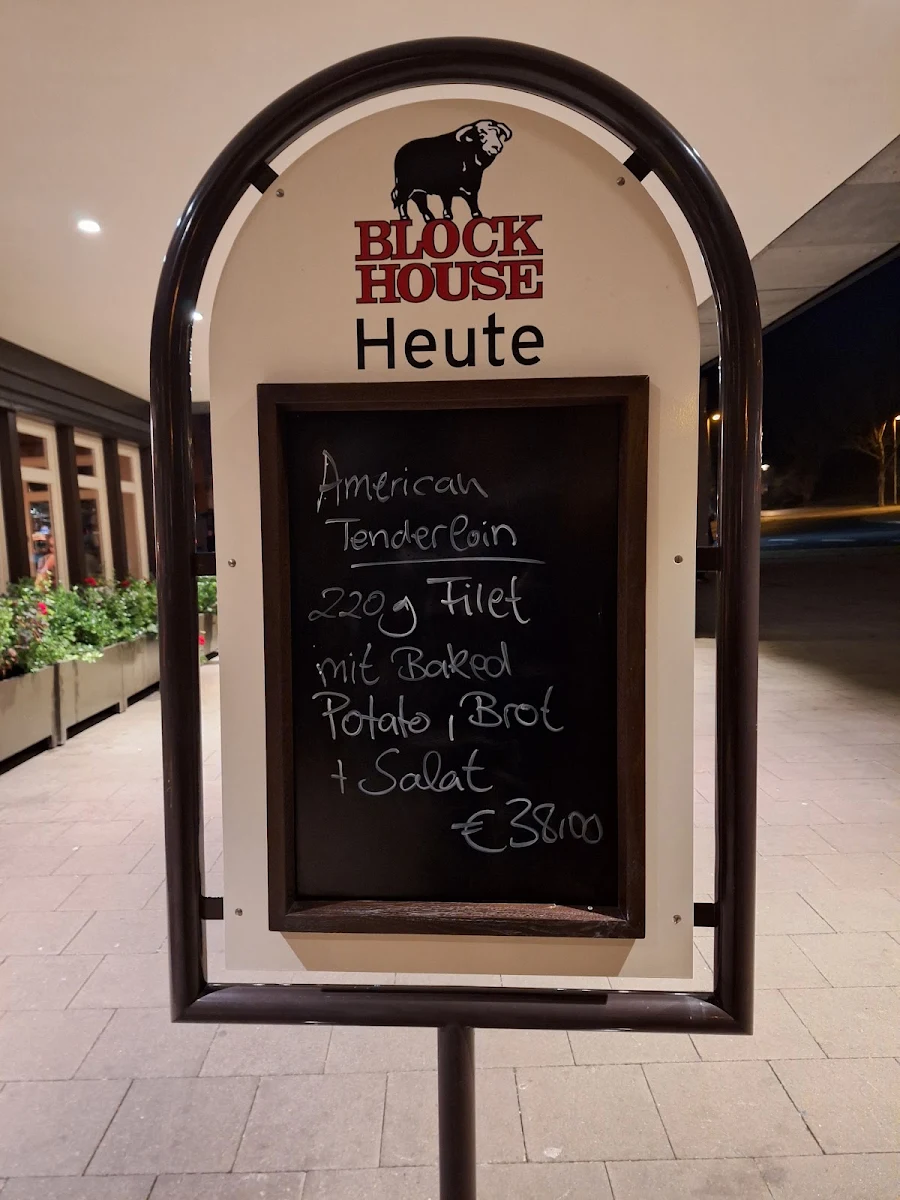 BLOCK
HOUSE
Heute
American
Tenderloin
220g Filet
mit Baked
Potato, Brot
+ Salat
€38,00